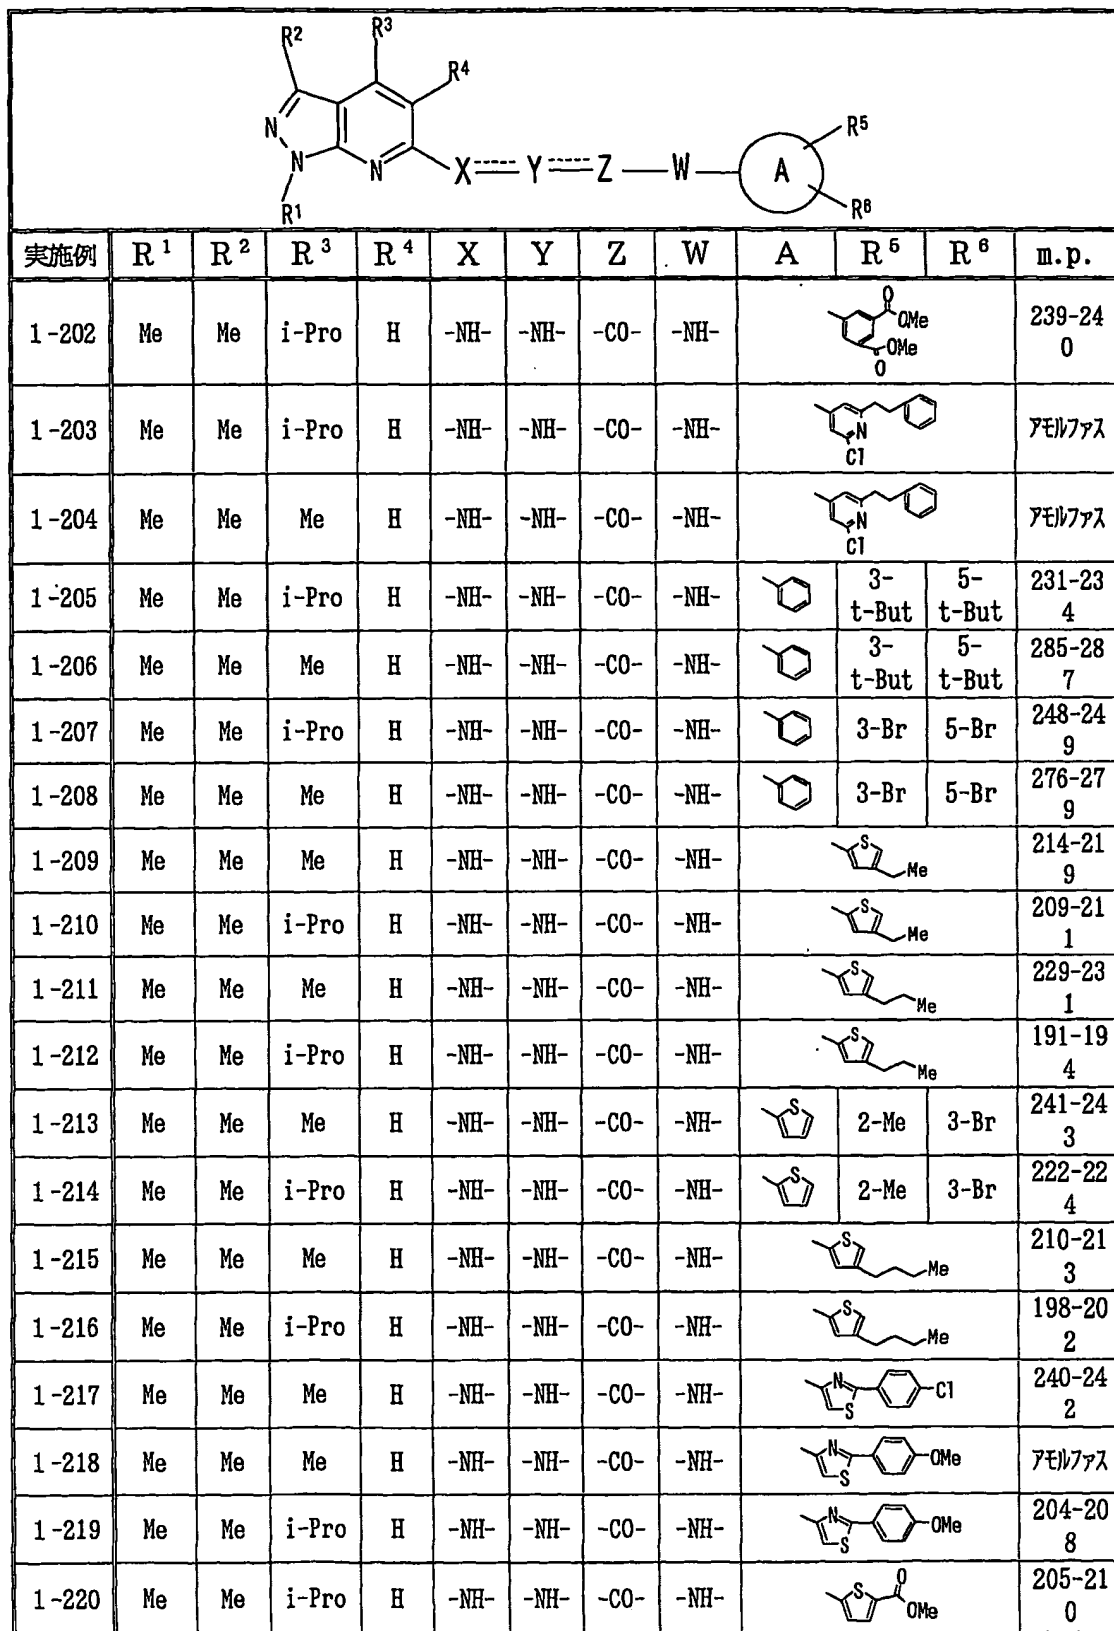 R2 R3
R4
N
N N X Y Z W A R5
R1 R6
実施例 R1 R2 R3 R4 X Y Z W A R5 R6 m.p.
1-202 Me Me i-Pro H -NH- -NH- -CO- -NH- O OMe OMe O 239-240
1-203 Me Me i-Pro H -NH- -NH- -CO- -NH- N Cl アモルファス
1-204 Me Me Me H -NH- -NH- -CO- -NH- N Cl アモルファス
1-205 Me Me i-Pro H -NH- -NH- -CO- -NH- 3-t-But 5-t-But 231-234
1-206 Me Me Me H -NH- -NH- -CO- -NH- 3-t-But 5-t-But 285-287
1-207 Me Me i-Pro H -NH- -NH- -CO- -NH- 3-Br 5-Br 248-249
1-208 Me Me Me H -NH- -NH- -CO- -NH- 3-Br 5-Br 276-279
1-209 Me Me Me H -NH- -NH- -CO- -NH- S Me 214-219
1-210 Me Me i-Pro H -NH- -NH- -CO- -NH- S Me 209-211
1-211 Me Me Me H -NH- -NH- -CO- -NH- S Me 229-231
1-212 Me Me i-Pro H -NH- -NH- -CO- -NH- S Me 191-194
1-213 Me Me Me H -NH- -NH- -CO- -NH- S 2-Me 3-Br 241-243
1-214 Me Me i-Pro H -NH- -NH- -CO- -NH- S 2-Me 3-Br 222-224
1-215 Me Me Me H -NH- -NH- -CO- -NH- S Me 210-213
1-216 Me Me i-Pro H -NH- -NH- -CO- -NH- S Me 198-202
1-217 Me Me Me H -NH- -NH- -CO- -NH- N S Cl 240-242
1-218 Me Me Me H -NH- -NH- -CO- -NH- N S OMe アモルファス
1-219 Me Me i-Pro H -NH- -NH- -CO- -NH- N S OMe 204-208
1-220 Me Me i-Pro H -NH- -NH- -CO- -NH- S O OMe 205-210